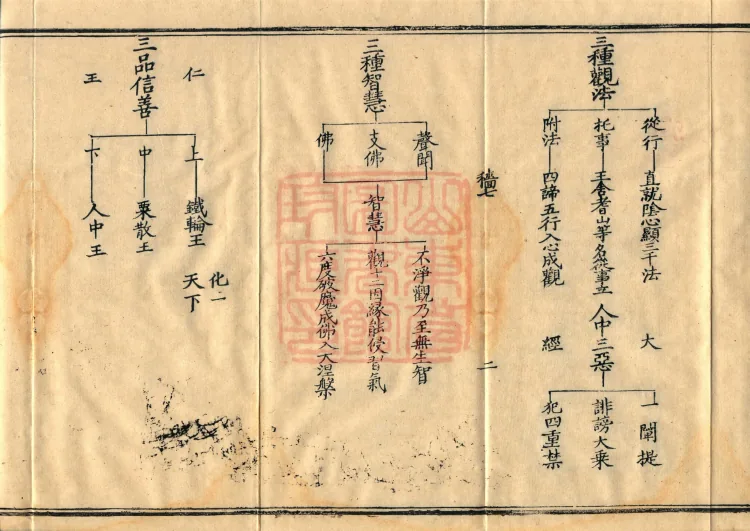 三種觀法
從行 直就陰心顯三千法
托事 王舍耆山等名從事立
附法 四諦五行入心成觀
大
經
人中三惡
一闡提
誹謗大乗
犯四重禁
二
三種智慧
聲聞
支佛
佛
智慧
不淨觀乃至無生智
觀十二因緣能侵習氣
六度破魔成佛入大涅槃
仁
王
三品信善
上 鐵輪王
中 粟散王
下 人中王
化一
天下